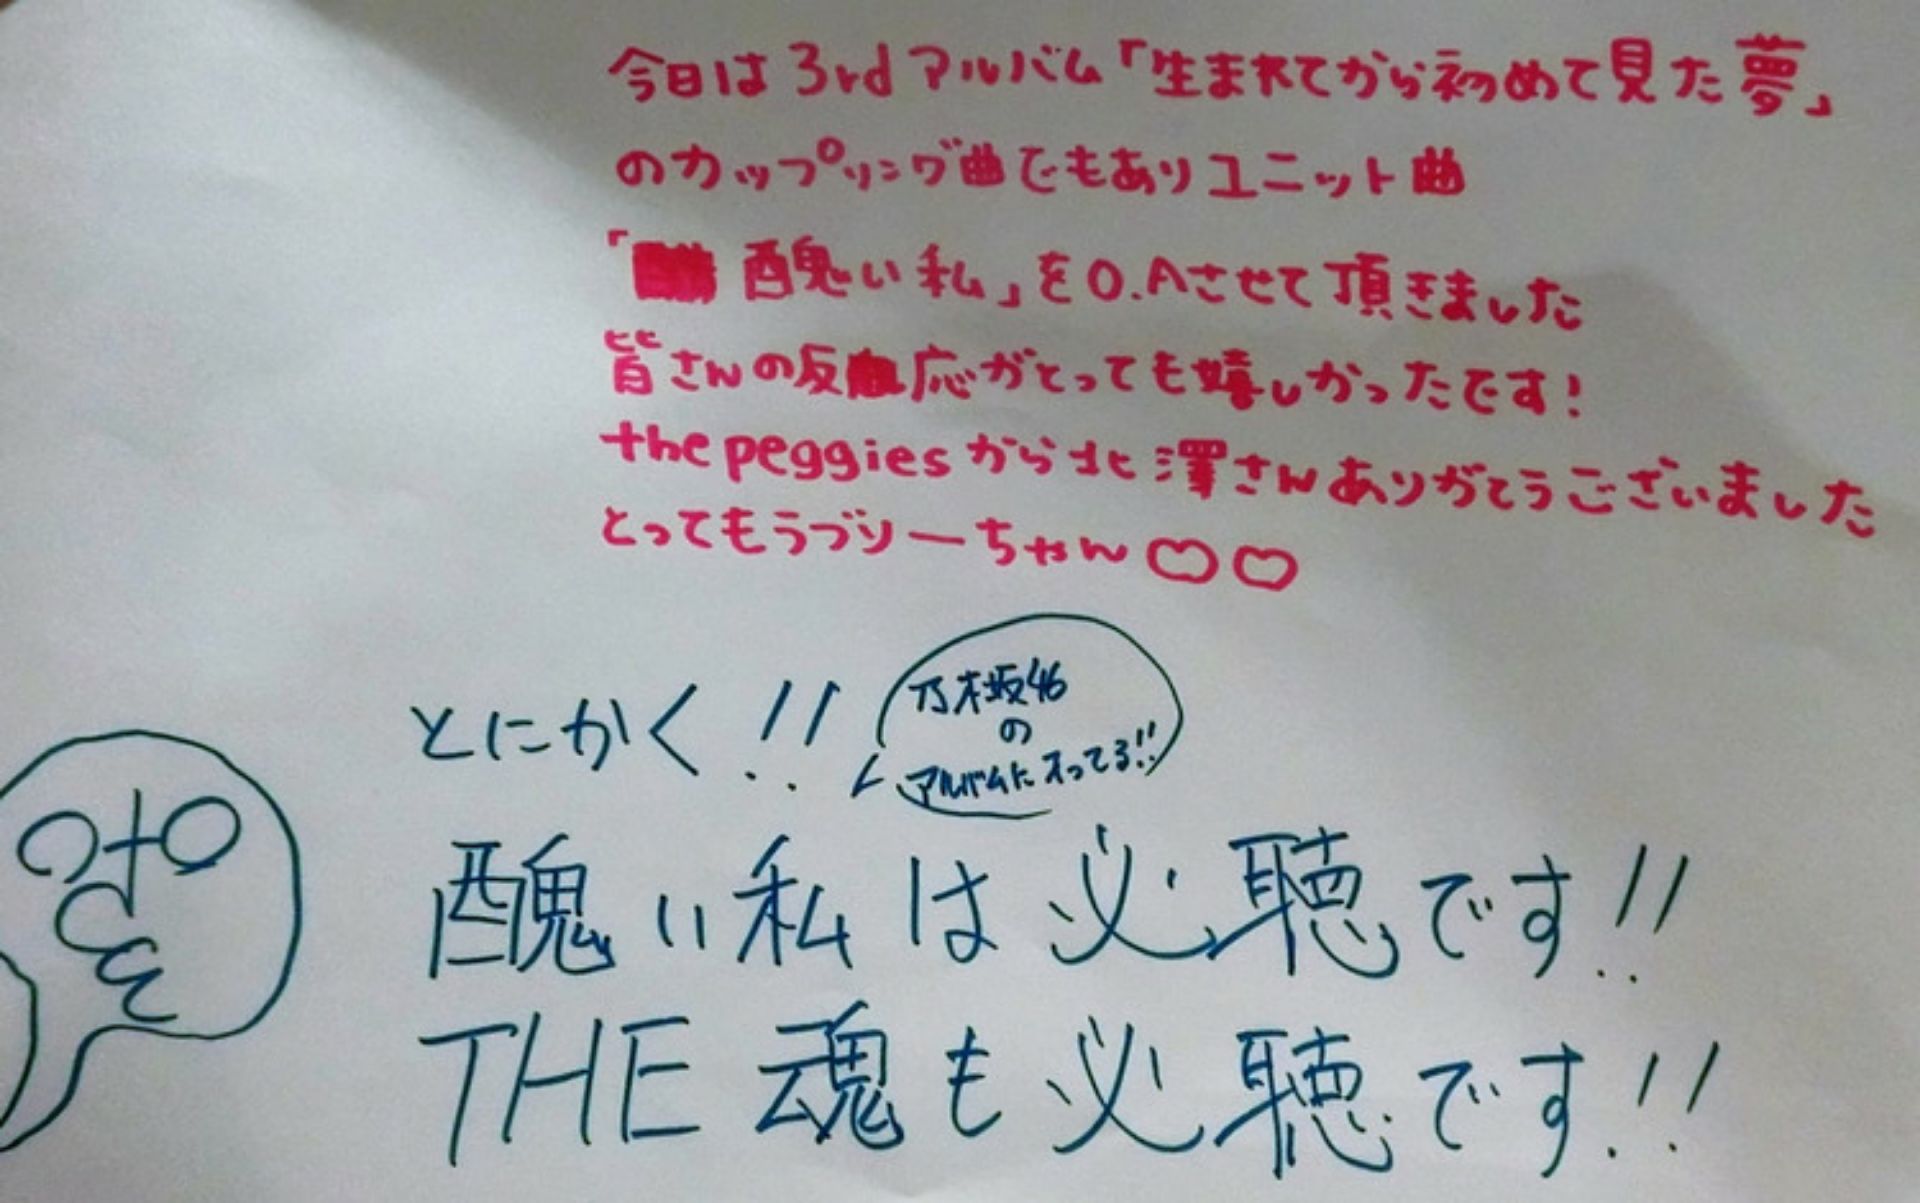 今日は3rdアルバム「生まれてから初めて見た夢」
のカップリング曲でもありユニット曲
「醜い私」をO.Aさせて頂きました
皆さんの反応がとっても嬉しかったです!
the peggiesから北澤さんありがとうございました
とってもうづりーちゃん♡♡
とにかく!!
乃木坂46
の
アルバムに入ってる!!
醜い私は必聴です!!
THE魂も必聴です!!